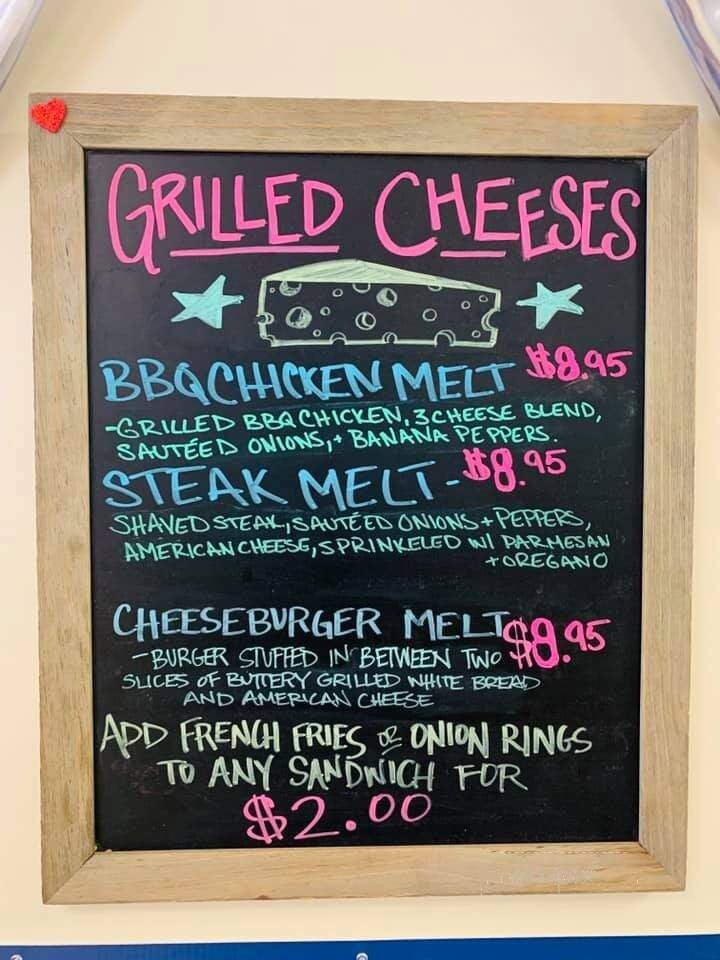 GRILLED CHEESES
BBQ CHICKEN MELT $8.95
-GRILLED BBQ CHICKEN, 3 CHEESE BLEND,
SAUTÉED ONIONS, + BANANA PEPPERS.
STEAK MELT - $8.95
SHAVED STEAK, SAUTÉED ONIONS + PEPPERS,
AMERICAN CHEESE, SPRINKELED W/ PARMESAN
+ OREGANO
CHEESEBURGER MELT $8.95
-BURGER STUFFED IN BETWEEN TWO
SLICES OF BUTTERY GRILLED WHITE BREAD
AND AMERICAN CHEESE
ADD FRENCH FRIES OR ONION RINGS
TO ANY SANDWICH FOR
$2.00